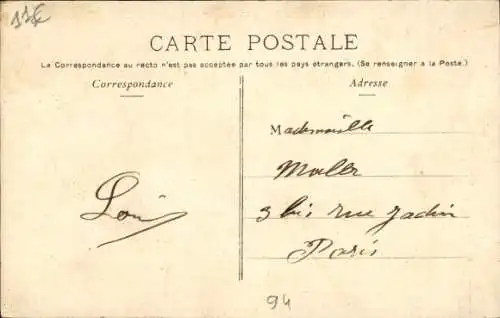 11€
CARTE POSTALE
La Correspondance au recto n'est pas acceptée par tous les pays étrangers. (Se renseigner à la Poste.)
Correspondance
Adresse
Mademoiselle
3 bis rue Jadin
Paris
94